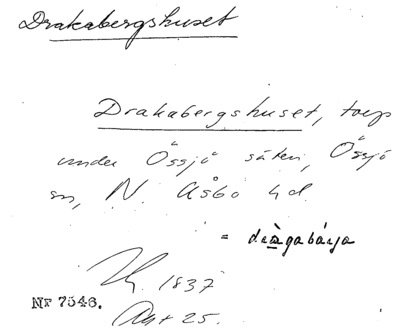 Drakabergshuset
Drakabergshuset, torp
under Össjö säteri, Össjö
sn, N. Åsbo hd.
= dràgabárja
1837
Nr 7546.
Akt 25.